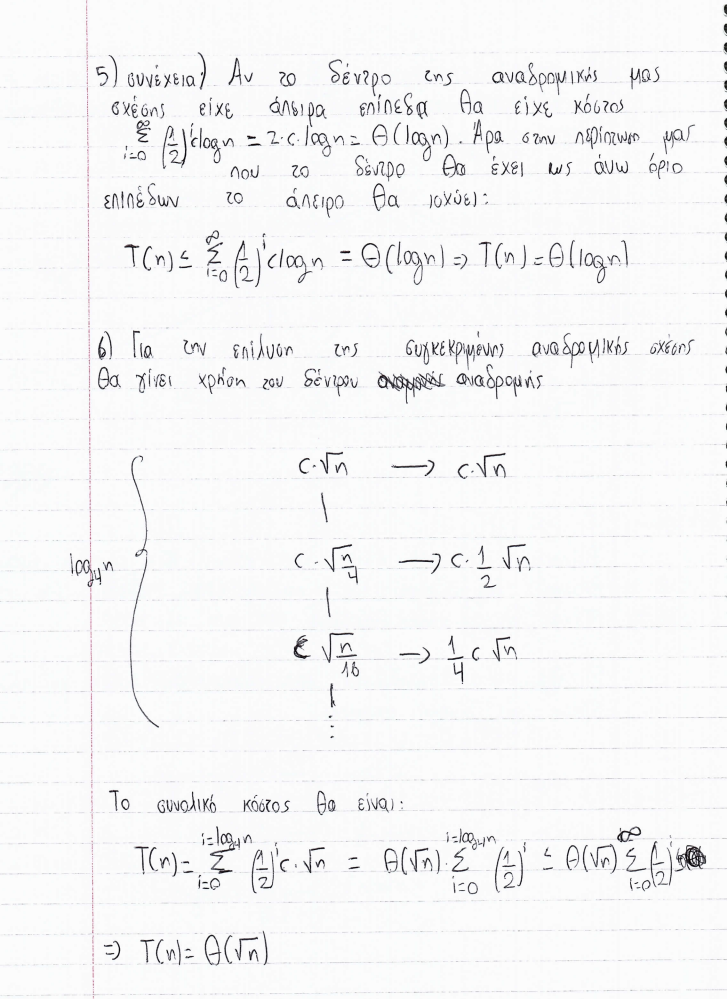 5) συνέχεια) Αν το δέντρο της αναδρομικής μας
σχέσης είχε άπειρα επίπεδα θα είχε κόστος
∑_{i=0}^{∞} (1/2)^i clogn = 2·c·logn = Θ(logn). Άρα στην περίπτωση μας
που το δέντρο θα έχει ως άνω όριο
επιπέδων το άπειρο θα ισχύει:
T(n) ≤ ∑_{i=0}^{∞} (1/2)^i clogn = Θ(logn) => T(n) = Θ(logn)
6) Για την επίλυση της συγκεκριμένης αναδρομικής σχέσης
θα γίνει χρήση του δέντρου αναδρομής
c·√n → c·√n
c·√(n/4) → c·1/2 √n
log₄n
c √(n/16) → 1/4 c √n
Το συνολικό κόστος θα είναι:
T(n) = ∑_{i=0}^{i=log₄n} (1/2)^i c·√n = Θ(√n)·∑_{i=0}^{i=log₄n} (1/2)^i ≤ Θ(√n) ∑_{i=0}^{∞} (1/2)^i
=> T(n) = Θ(√n)